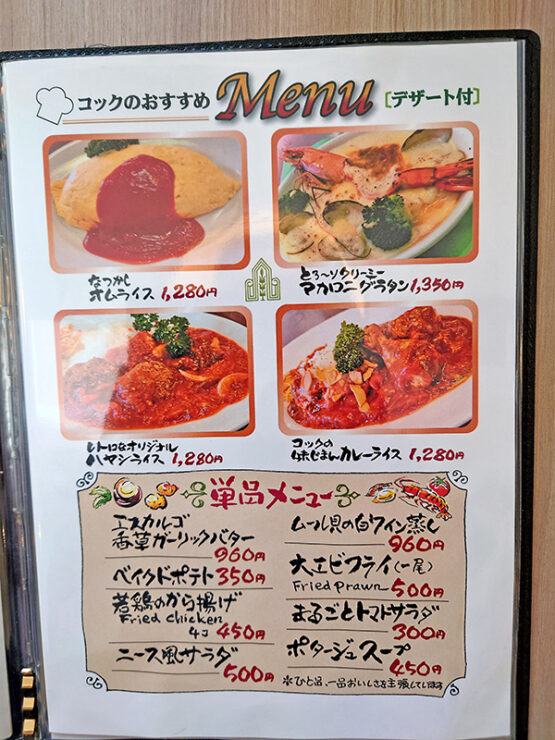 コックのおすすめ Menu [デザート付]
なつかし
オムライス 1,280円
とろ〜りクリーミー
マカロニグラタン 1,350円
レトロなオリジナル
ハヤシライス 1,280円
コックの
味じまんカレーライス 1,280円
単品メニュー
エスカルゴ
香草ガーリックバター
960円
ベイクドポテト 350円
若鶏のから揚げ
Fried chicken
4コ 450円
ニース風サラダ
500円
ムール貝の白ワイン蒸し
960円
大エビフライ(一尾)
Fried Prawn 500円
まるごとトマトサラダ
300円
ポタージュスープ
450円
※ひと品、一品おいしさを主張しています